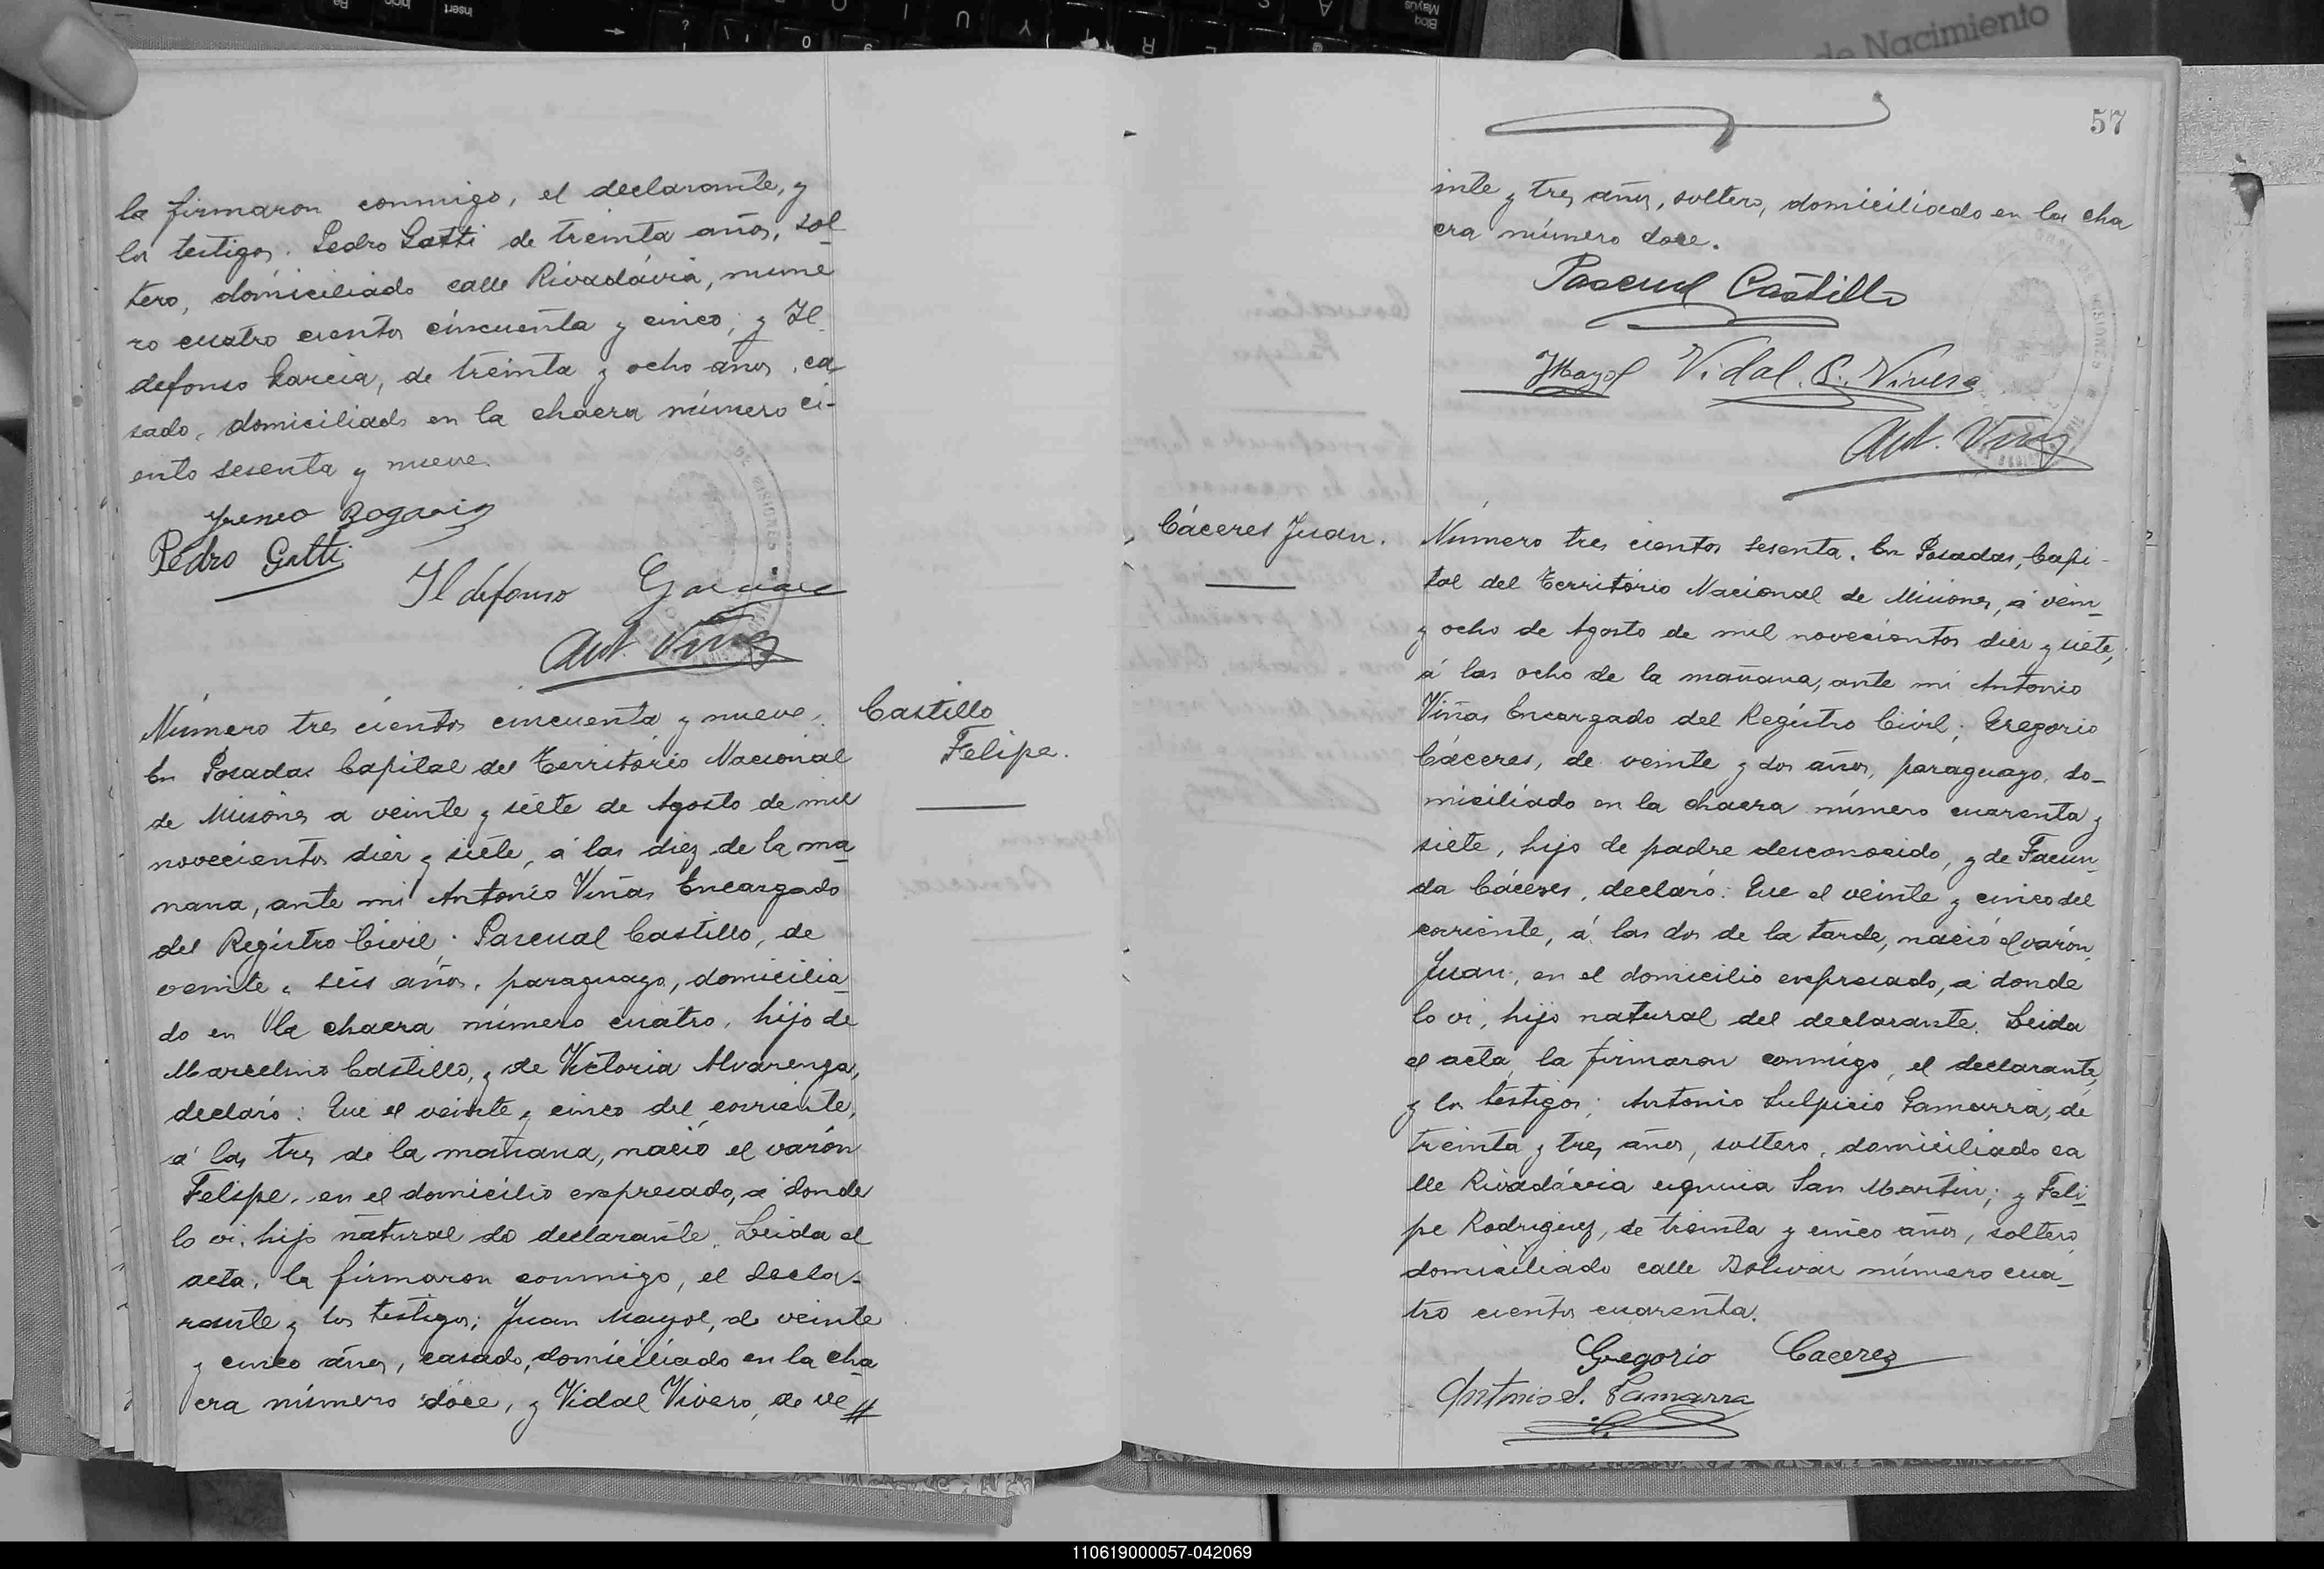 la firmaron conmigo, el declarante, y
los testigos. Pedro Gatti de treinta años, sol
tero, domiciliado calle Rivadávia, nume
ro cuatro cientos cincuenta y cinco; y Il
defonso Garcia, de treinta y ocho años, ca
sado, domiciliado en la chacra número ci-
ento sesenta y nueve.
Yreneo Bogarin
Pedro Gatti
Ildefonso Garcia
Ant. Viñas
Número tres cientos cincuenta y nueve.
En Posadas Capital del Territorio Nacional
de Misiones a veinte y siete de Agosto de mil
novecientos diez y siete, á las diez de la ma
nana, ante mi Antonio Viñas Encargado
del Registro Civil; Pascual Castillo, de
veinte y seis años, paraguayo, domicilia
do en la chacra número cuatro, hijo de
Marcelino Castillo, y de Victoria Alvarenga,
declaró: Que el veinte y cinco del corriente,
á las tres de la mañana, nació el varón
Felipe, en el domicilio expresado, a donde
lo vi, hijo natural do declarante. Leida el
acta, la firmaron conmigo, el decla-
rante y los testigos; Juan Mayol, de veinte
y cinco años, casado, domiciliado en la cha
cra número doce, y Vidal Vivero, de ve //
Castillo
Felipe.
de Nacimiento
57
inte y tres años, soltero, domiciliado en la cha
cra número doce.
Pascual Castillo
JMayol Vidal. C. Nivero
Ant. Viñas
Cáceres Juan.
Número tres cientos sesenta. En Posadas, Capi-
tal del Territorio Nacional de Misiones, á vein
y ocho de Agosto de mil novecientos diez y siete,
á las ocho de la mañana, ante mi Antonio
Viñas Encargado del Registro Civil; Gregorio
Cáceres, de veinte y dos años, paraguayo, do-
miciliado en la chacra número cuarenta y
siete, hijo de padre desconocido, y de Facun
da Cáceres, declaró: Que el veinte y cinco del
corriente, á las dos de la tarde, nació el varón
Juan, en el domicilio expresado, á donde
lo vi, hijo natural del declarante. Leida
el acta, la firmaron conmigo, el declarante,
y los testigos; Antonio Sulpicio Gamarra, de
treinta y tres años, soltero, domiciliado ca
lle Rivadávia esquina San Martin; y Feli
pe Rodriguez, de treinta y cinco años, soltero,
domiciliado calle Bolivar número cua
tro cientos cuarenta.
Gregorio Cacerez
Antonio S. Gamarra
110619000057-042069